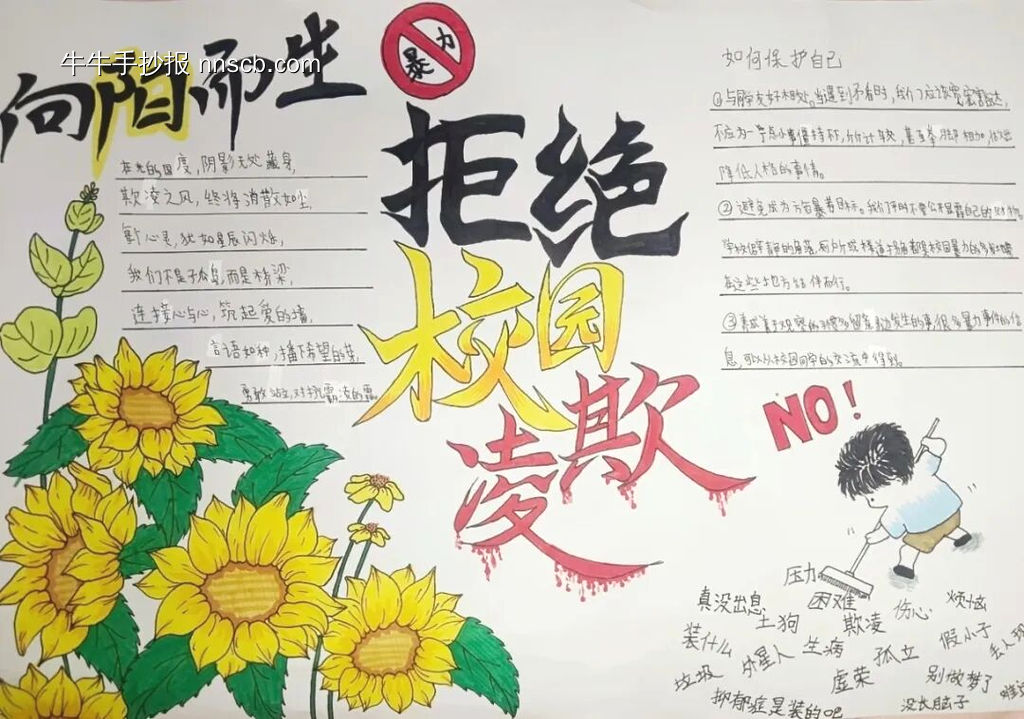 牛牛手抄报 nnscb.com
向阳而生
暴力
拒绝
校园
凌欺
在光的国度,阴影无处藏身,
欺凌之风,终将消散如尘,
心灵,犹如星辰闪烁,
我们不是孤岛,而是桥梁,
连接心与心,筑起爱的墙,
言语如种,播下希望的
勇敢站立,对抗霸凌的
如何保护自己
①与同学友好相处。当遇到矛盾时,我们应该宽宏豁达,
不应为一点小事僵持不下,斤斤计较,甚至拳脚相加,做出
降低人格的事情。
②避免成为施暴者目标。我们平时不要公开显露自己的财物。
学校僻静的角落、厕所或楼道拐角都是校园暴力的多发地带
在这些地方结伴而行。
③养成善于观察的习惯多留意身边发生的事,很多暴力事件的信
息,可以从校园同学的交流中得到。
NO!
压力
真没出息 困难 伤心 烦恼
土狗 欺凌
装什么 外星人 生病 孤立 假小子 丢人现
垃圾 虚荣 别做梦了
抑郁症是装的吧 没长脑子